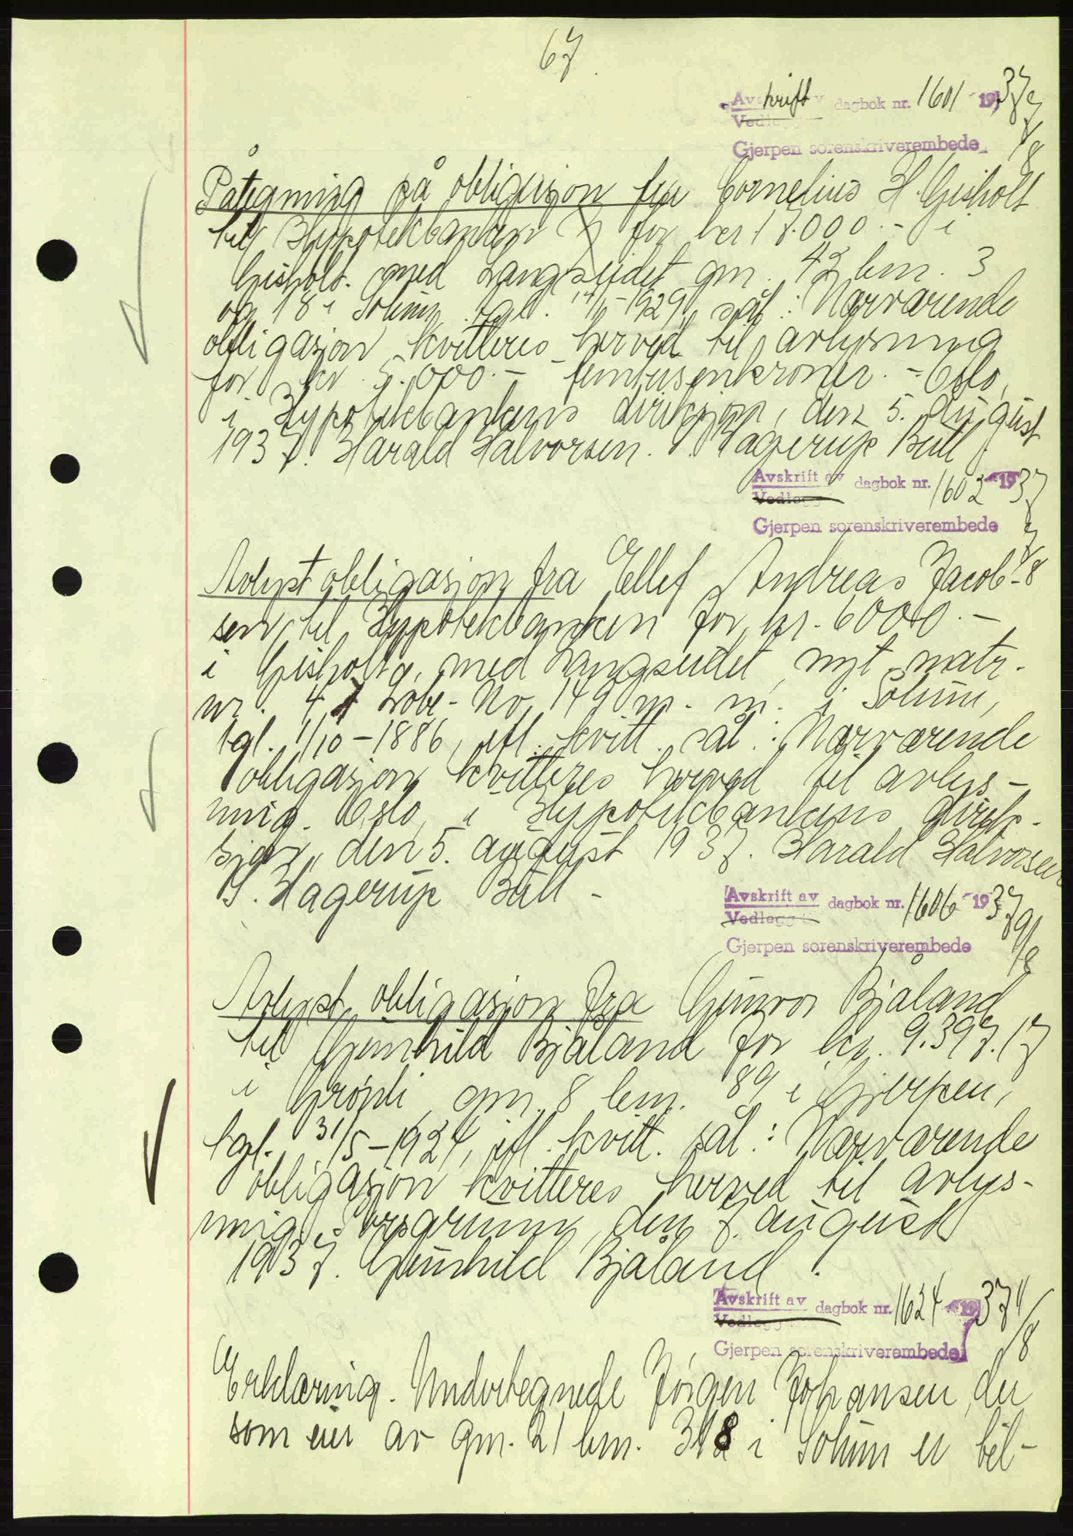 67.
Avskrift av dagbok nr. 1601 - 1937
Vedlegg
Gjerpen sorenskriverembede 7/8
Påtegning på obligasjon fra Cornelius H. Gisholt
til Hypotekbanken for kr 17.000.- i
Gisholt med Langseidet gm. 42 bnr. 3
og 18 i Solum, tgl. 1929, sål: Nærværende
obligasjon kvitteres herved til avlysning
for kr. 5.000.- femtusenkroner. - Oslo,
i Hypotekbankens direksjon, den 5. august
1937. Harald Halvorsen. Hagerup Bull.
Avskrift av dagbok nr. 1602 - 1937
Vedlegg
Gjerpen sorenskriverembede 7/8
Avlyst obligasjon fra Ellef Andreas Jacob-
sen, til Hypotekbanken for kr. 6000.-
i Gisholt, med Langseidet nyt matr.
nr. 4, Løbe-No, 149 m. m. i Solum,
tgl. 1/10-1886, ifl. kvitt. sål: Nærværende
obligasjon kvitteres herved til avlys-
ning. Oslo, i Hypotekbankens direk-
sjon, den 5. august 1937. Harald Halvorsen
Hagerup Bull -
Avskrift av dagbok nr. 1606 - 1937
Vedlegg
Gjerpen sorenskriverembede 9/8
Avlyst obligasjon fra Gunvor Bjåland
til Gunhild Bjåland for kr. 9.397.17
i gm 8 bnr. 89 i Gjerpen,
tgl. 31/5-1924, ifl. kvitt. sål: Nærværende
obligasjon kvitteres herved til avlys-
ning. Porsgrunn, den 7. august
1937. Gunhild Bjåland.
Avskrift av dagbok nr. 1624 - 1937
Vedlegg
Gjerpen sorenskriverembede 11/8
Erklæring. Undertegnede Jørgen Johansen, der
som eier av gm. 21 bnr. 318 i Solum er bél-